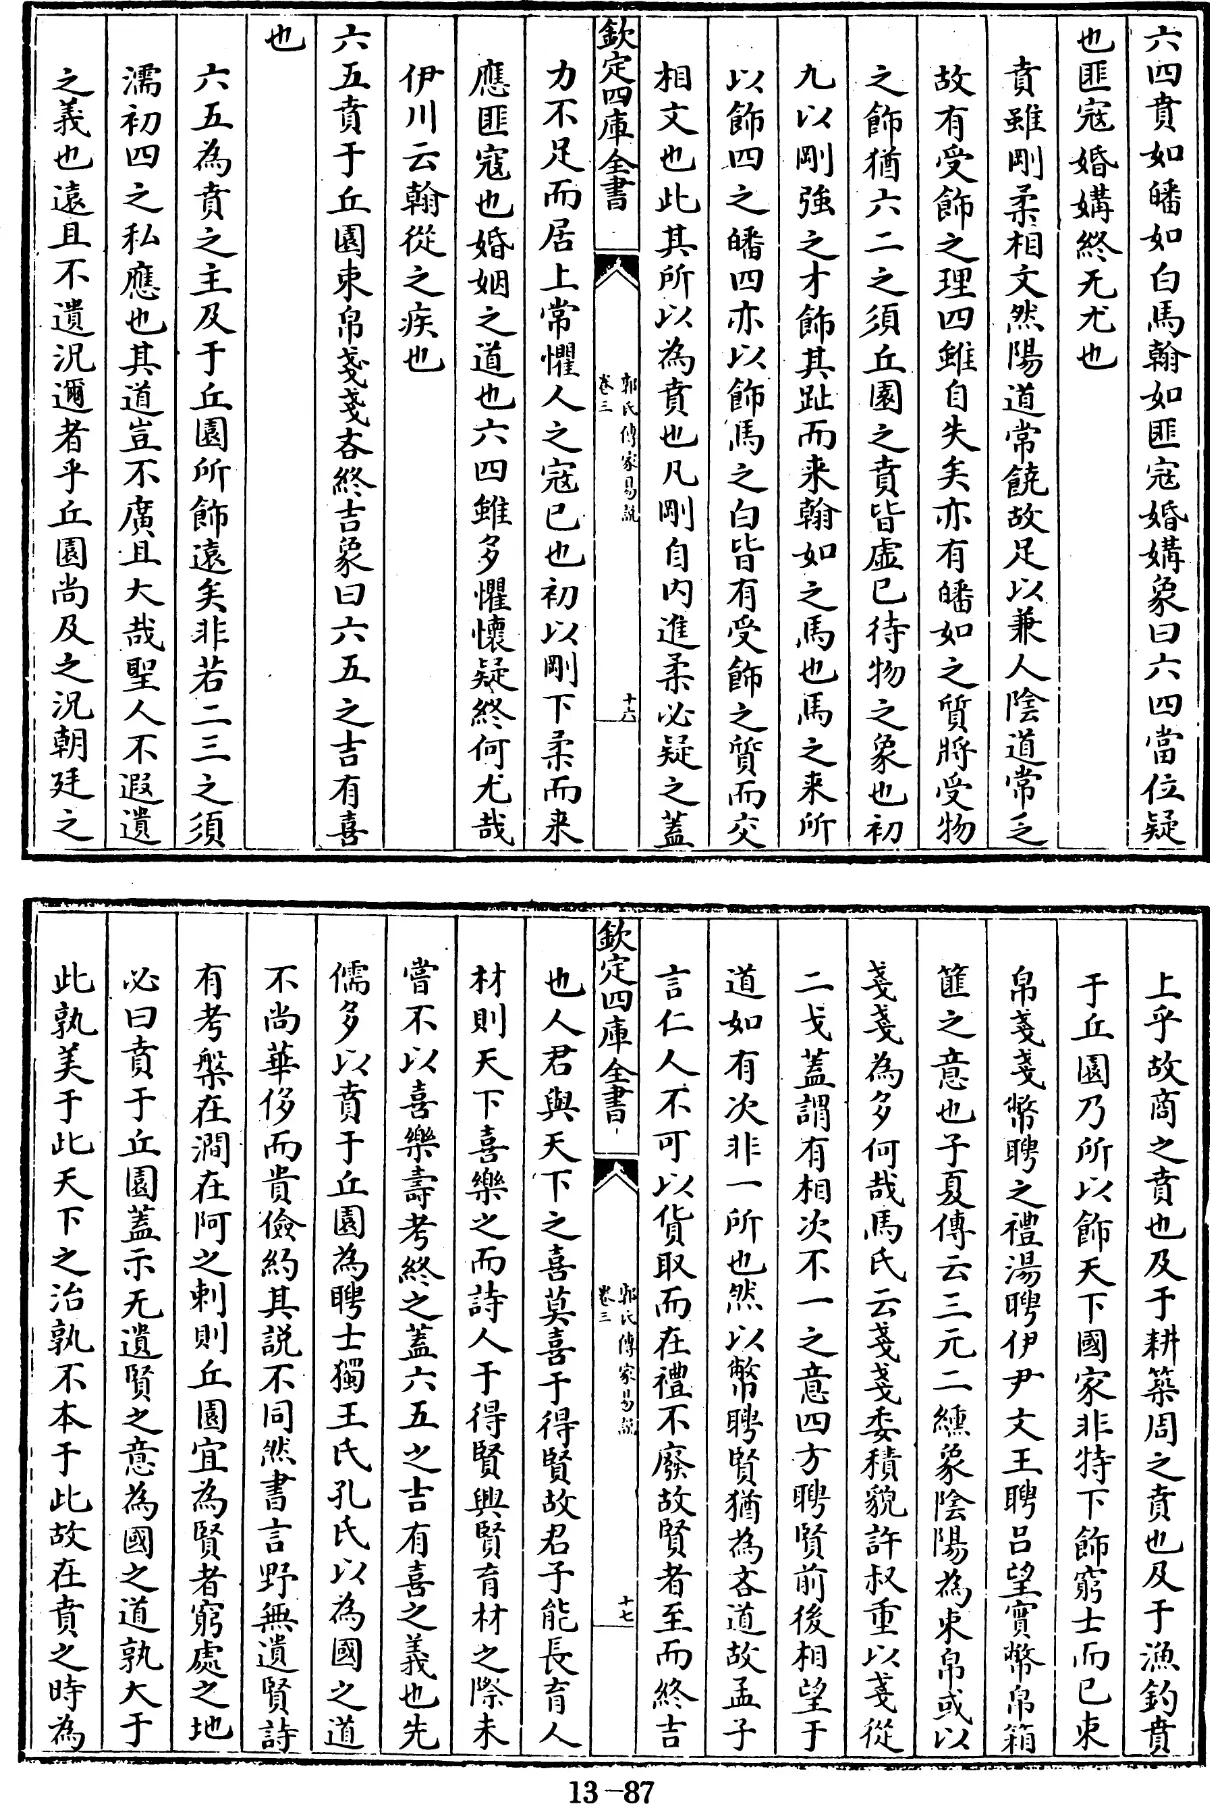 六四賁如皤如白馬翰如匪寇婚媾象曰六四當位疑
也匪寇婚媾終无尤也
賁雖剛柔相文然陽道常饒故足以兼人陰道常乏
故有受飾之理四雖自失矣亦有皤如之質將受物
之飾猶六二之須丘園之賁皆虛已待物之象也初
九以剛強之才飾其趾而來翰如之馬也馬之來所
以飾四之皤四亦以飾馬之白皆有受飾之質而交
相文也此其所以為賁也凡剛自内進柔必疑之蓋
欽定四庫全書
郭氏傳家易說
卷三
十六
力不足而居上常懼人之寇已也初以剛下柔而來
應匪寇也婚姻之道也六四雖多懼懷疑終何尤哉
伊川云翰從之疾也
六五賁于丘園束帛戔戔吝終吉象曰六五之吉有喜
也
六五為賁之主及于丘園所飾遠矣非若二三之須
濡初四之私應也其道豈不廣且大哉聖人不遐遺
之義也遠且不遺况邇者乎丘園尚及之况朝廷之
上乎故商之賁也及于耕築周之賁也及于漁釣賁
于丘園乃所以飾天下國家非特下飾窮士而已束
帛戔戔幣聘之禮湯聘伊尹文王聘吕望實幣帛箱
篚之意也子夏傳云三元二纁象陰陽為束帛或以
戔戔為多何哉馬氏云戔戔委積貌許叔重以戔從
二戈蓋謂有相次不一之意四方聘賢前後相望于
道如有次非一所也然以幣聘賢猶為吝道故孟子
言仁人不可以貨取而在禮不廢故賢者至而終吉
欽定四庫全書
郭氏傳家易說
卷三
十七
也人君與天下之喜莫喜于得賢故君子能長育人
材則天下喜樂之而詩人于得賢與賢育材之際未
嘗不以喜樂壽考終之蓋六五之吉有喜之義也先
儒多以賁于丘園為聘士獨王氏孔氏以為國之道
不尚華侈而貴儉約其説不同然書言野無遺賢詩
有考槃在澗在阿之刺則丘園宜為賢者窮處之地
必曰賁于丘園蓋示无遺賢之意為國之道孰大于
此孰美于此天下之治孰不本于此故在賁之時為
13-87